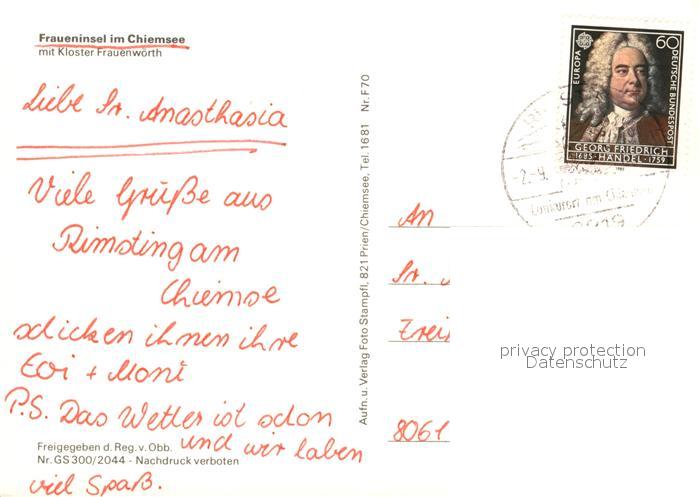 Fraueninsel im Chiemsee
mit Kloster Frauenwörth
Liebe Sr. Anasthasia
Viele Grüße aus
Rimsting am
Chiemse
schicken ihnen ihre
Evi + Moni
P.S. Das Wetter ist schon
und wir haben
viel Spaß.
Freigegeben d. Reg. v. Obb.
Nr. GS 300/2044 - Nachdruck verboten
Aufn. u. Verlag Foto Stampfl, 821 Prien/Chiemsee, Tel. 1681 Nr. F 70
EUROPA
60
DEUTSCHE BUNDESPOST
GEORG FRIEDRICH
1685 · HÄNDEL · 1759
1985
-2.-9.
8219
An
Sr.
8061
privacy protection
Datenschutz